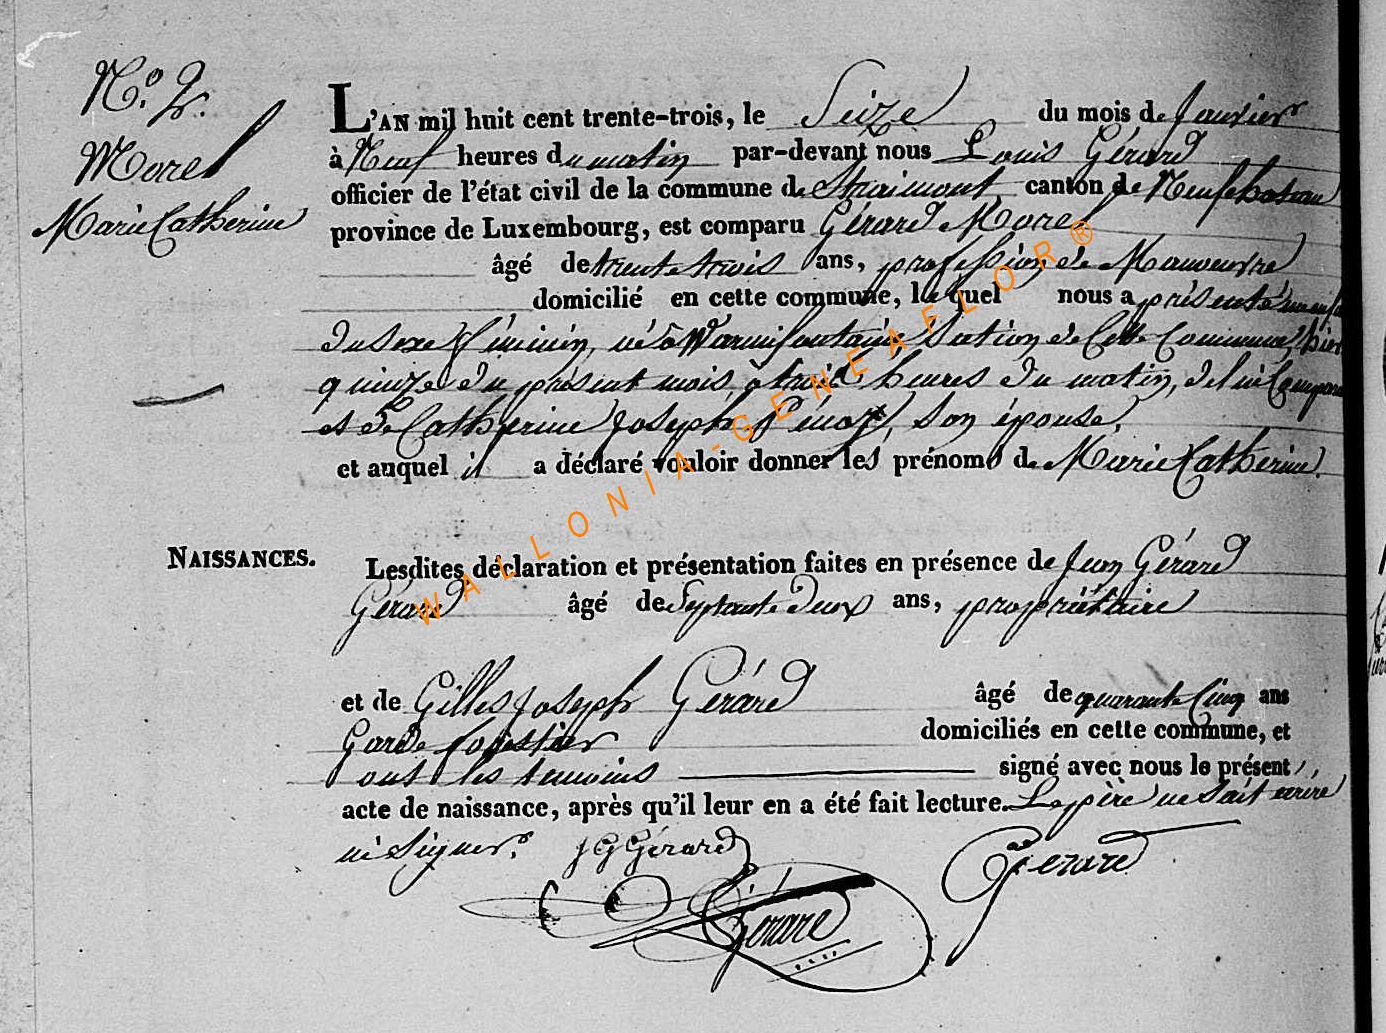 N.° 2.
Morel
Marie Catherine
L'AN mil huit cent trente-trois, le Seize du mois de Janvier
à Neuf heures du matin par-devant nous Louis Gérard
officier de l'état civil de la commune de Straimont, canton de Neufchateau
province de Luxembourg, est comparu Gérard Morel
âgé de trente trois ans, profession de Manoeuvre
domicilié en cette commune, lequel nous a présenté un enfant
du sexe féminin, né à Warmifontaine Section de Cette Commune, hier
quinze du présent mois, à trois heures du matin, de lui Comparant
et de Catherine Joseph son épouse,
et auquel il a déclaré vouloir donner les prénoms de Marie Catherine.
NAISSANCES.
Lesdites déclaration et présentation faites en présence de Jean Gérard
Gérard âgé de Septante deux ans, propriétaire
et de Gilles Joseph Gérard âgé de quarante Cinq ans
Garde forestier domiciliés en cette commune, et
ont les temoins signé avec nous le présent
acte de naissance, après qu'il leur en a été fait lecture. Le père ne Sait écrire
ni Signer. J G Gérard
Gerard
Gérard
WALLONIA-GENEAFLOR®